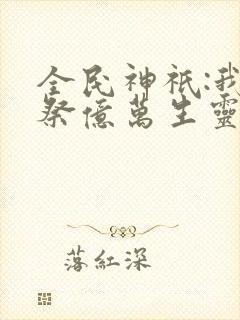 全民神祇:我
祭億萬生靈
落紅深